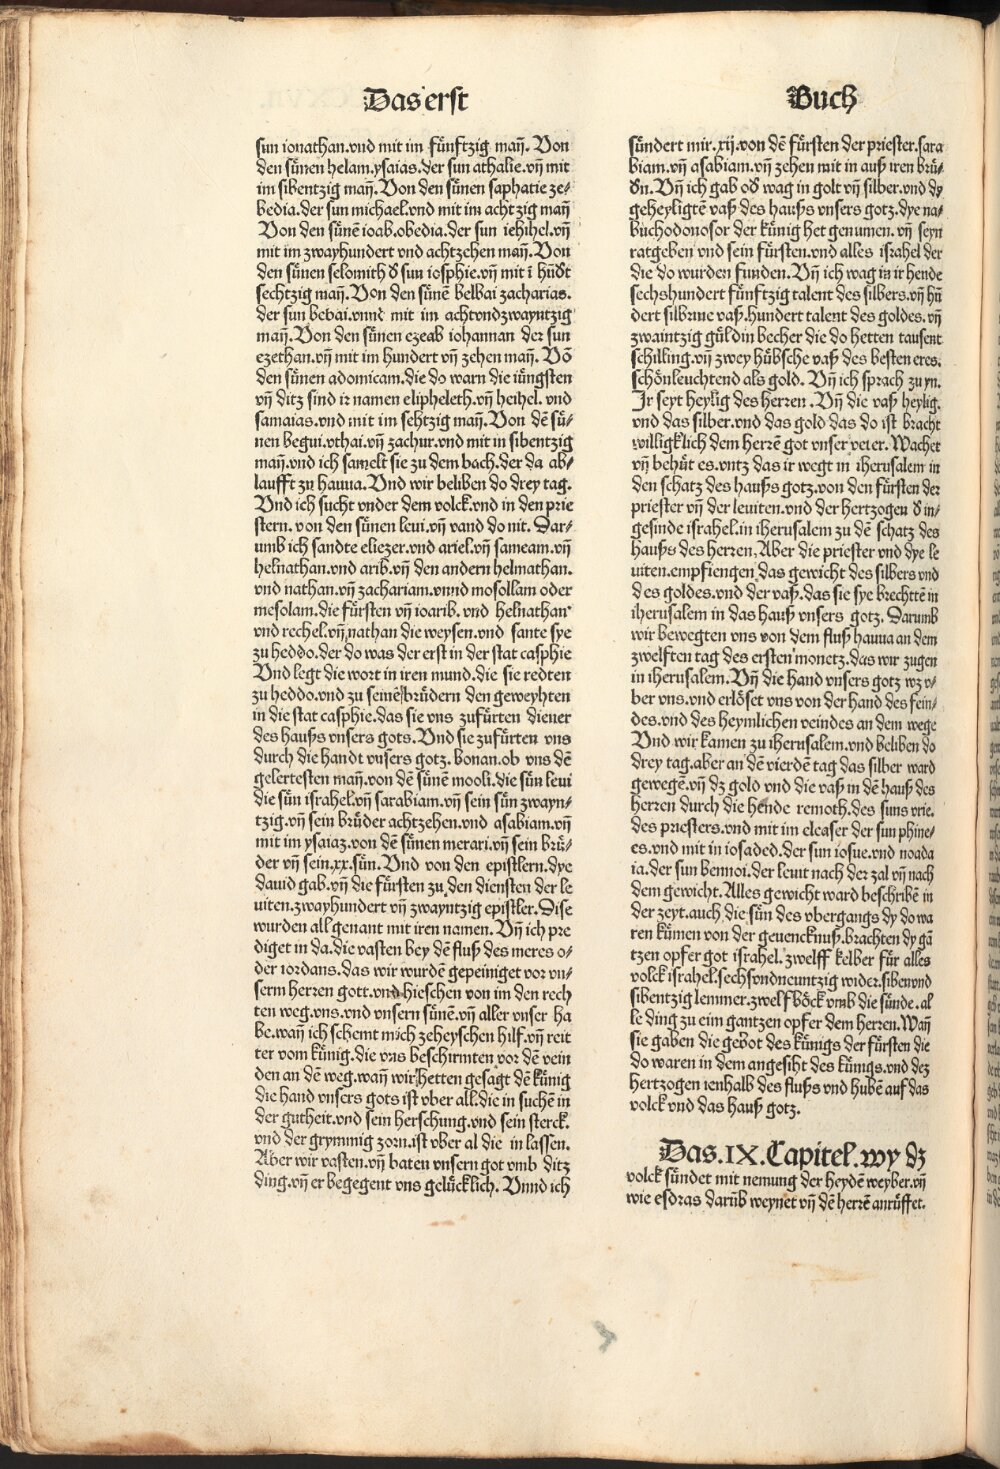 Das erst
Buch
sun ionathan.vnd mit im fuͤnftzig mañ. Von
den suͤnen helam.ysaias.der sun athalie.vñ mit
im sibentzig mañ. Von den suͤnen saphatie ze⸗
bedia.der sun michael.vnd mit im achtzig mañ
Von den suͤnē ioab.obedia.der sun iehihel.vñ
mit im zwayhundert vnd achtzehen mañ. Von
den suͤnen selomith d̕ sun iosphie.vñ mit ī hūd̕t
sechtzig mañ. Von den suͤnē belbai zacharias.
der sun bebai.vnnd mit im achtvndzwayntzig
mañ. Von den suͤnen ezeab iohannan der sun
ezethan.vñ mit im hundert vñ zehen mañ. Vō
den suͤnen adomicam.die do warn die iuͤngsten
vñ ditz sind ir namen elipheleth.vñ heihel. vnd
samaias.vnd mit im sehtzig mañ. Von dē suͤ⸗
nen begui.vthai.vñ zachur.vnd mit in sibentzig
mañ.vnd ich samelt sie zu dem bach.der da ab⸗
laufft zu hauua. Vnd wir beliben do drey tag.
Vnd ich sucht vnder dem volck.vnd in den prie
stern. von den suͤnen leui.vñ vand do nit. Dar⸗
umb ich sandte eliezer.vnd ariel.vñ sameam.vñ
helnathan.vnd arib.vñ den andern helmathan.
vnd nathan.vñ zachariam.vnnd mosollam oder
mesolam.die fuͤrsten vñ ioarib. vnd helnathan
vnd rechel.vñ nathan die weysen.vnd sante sye
zu heddo.der do was der erst in der stat casphie
Vnd legt die wort in iren mund.die sie redten
zu heddo.vnd zu seinē bruͤdern den geweyhten
in die stat casphie.das sie vns zufuͤrten diener
des hauſs vnsers gots. Vnd sie zufuͤrten vns
durch die handt vnsers gotz. bonan.ob vns dē
gelertesten mañ.von dē suͤnē mooli.die suͤn leui
die suͤn israhel.vñ sarabiam.vñ sein suͤn zwayn⸗
tzig.vñ sein bruͤder achtzehen.vnd asabiam.vñ
mit im ysaiaz.von dē suͤnen merari.vñ sein bruͤ⸗
der vñ sein.xx.suͤn. Vnd von den epistlern.dye
dauid gab.vñ die fuͤrsten zu den diensten der le
uiten.zwayhundert vñ zwayntzig epistler. Dise
wurden all genant mit iren namen. Vñ ich pre
diget in da.die vasten bey dē fluſs des meres o⸗
der iordans.das wir wurdē gepeiniget vor vn⸗
serm herren gott.vnd hieschen von im den rech
ten weg.vns.vnd vnsern suͤnē.vñ aller vnser ha
be.wañ ich schemt mich zeheyschen hilf.vñ reit
ter vom kuͤnig.die vns beschirmten vor dē vein
den an dē weg.wañ wir hetten gesagt dē kuͤnig
die hand vnsers gots ist vber all.die in suchē in
der gutheit.vnd sein herschung.vnd sein sterck.
vnd der grymmig zorn.ist vber al die in lassen.
Aber wir vasten.vñ baten vnsern got vmb ditz
ding.vñ er begegent vns geluͤcklich. Vnnd ich
suͤndert mir.xij.von dē fuͤrsten der priester.sara
biam.vñ asabiam.vñ zehen mit in auſs iren bruͤ⸗
d̕n. Vñ ich gab od̕ wag in golt vñ silber.vnd dy
geheyligtē vaſs des hauſs vnsers gotz.dye na⸗
buchodonosor der kuͤnig het genumen. vñ seyn
ratgeben vnd sein fuͤrsten.vnd alles israhel der
die do wurden funden. Vñ ich wag in ir hende
sechshundert fuͤnftzig talent des silbers.vñ hū
dert silbrine vaſs.hundert talent des goldes.vñ
zwaintzig guͤldin becher die do hetten tausent
schilling.vñ zwey huͤbsche vaſs des besten eres.
schoͤnleuchtend als gold. Vñ ich sprach zu yn.
Ir seyt heylig des herren. Vñ die vaſs heylig.
vnd das silber.vnd das gold das do ist bracht
williglich dem herrē got vnser veter. Wachet
vñ behuͤt es.vntz das ir wegt in iherusalem in
den schatz des hauſs gotz.von den fuͤrsten der
priester vñ der leuiten.vnd der hertzogen d̕ in⸗
gesinde israhel.in iherusalem zu dē schatz des
hauſs des herren. Aber die priester vnd dye le
uiten.empfiengen das gewicht des silbers vnd
des goldes.vnd der vaſs.das sie sye brechttē in
iherusalem in das hauſs vnsers gotz. Darumb
wir bewegten vns von dem fluſs hauua an dem
zwelften tag des ersten monetz.das wir zugen
in iherusalem. Vñ die hand vnsers gotz wz v⸗
ber vns.vnd erloͤset vns von der hand des fein⸗
des.vnd des heymlichen veindes an dem wege
Vnd wir kamen zu iherusalem.vnd beliben do
drey tag.aber an dē vierdē tag das silber ward
gewegē.vñ dz gold vnd die vaſs in dē hauſs des
herren durch die hende remoth.des suns vrie.
des priesters.vnd mit im eleaser der sun phine⸗
es.vnd mit in iosaded.der sun iosue.vnd noada
ia.der sun bennoi.der leuit nach der zal vñ nach
dem gewicht. Alles gewicht ward beschribē in
der zeyt.auch die suͤn des vbergangs dy do wa
ren kuͤmen von der geuencknuſs.brachten dy gā
tzen opfer got israhel. zwelff kelber fuͤr alles
volck israhel.sechsvndneuntzig wider.sibenvnd
sibentzig lemmer.zwelf boͤck vmb die suͤnde.al
le ding zu eim gantzen opfer dem herren. Wañ
sie gaben die gebot des kuͤnigs der fuͤrsten die
do waren in dem angesiht des kuͤnigs.vnd dez
hertzogen ienhalb des fluſs vnd hubē auf das
volck vnd das hauſs gotz.
Das.IX.Capitel.wy dz
volck suͤndet mit nemung der heydē weyber.vñ
wie esdras darūb weynet vñ dē herrē anruͤffet.